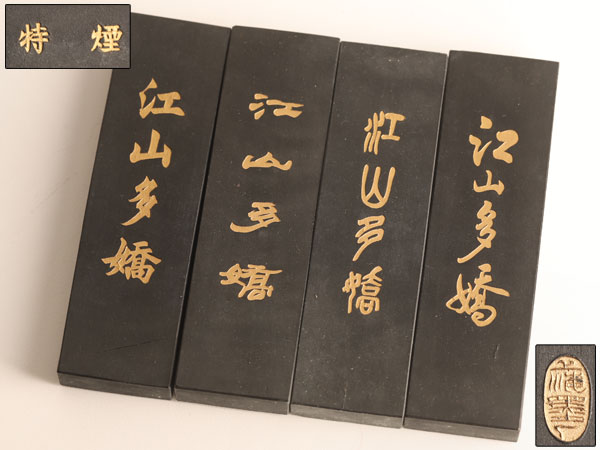 特煙
江山多嬌
江山多嬌
江山多嬌
江山多嬌